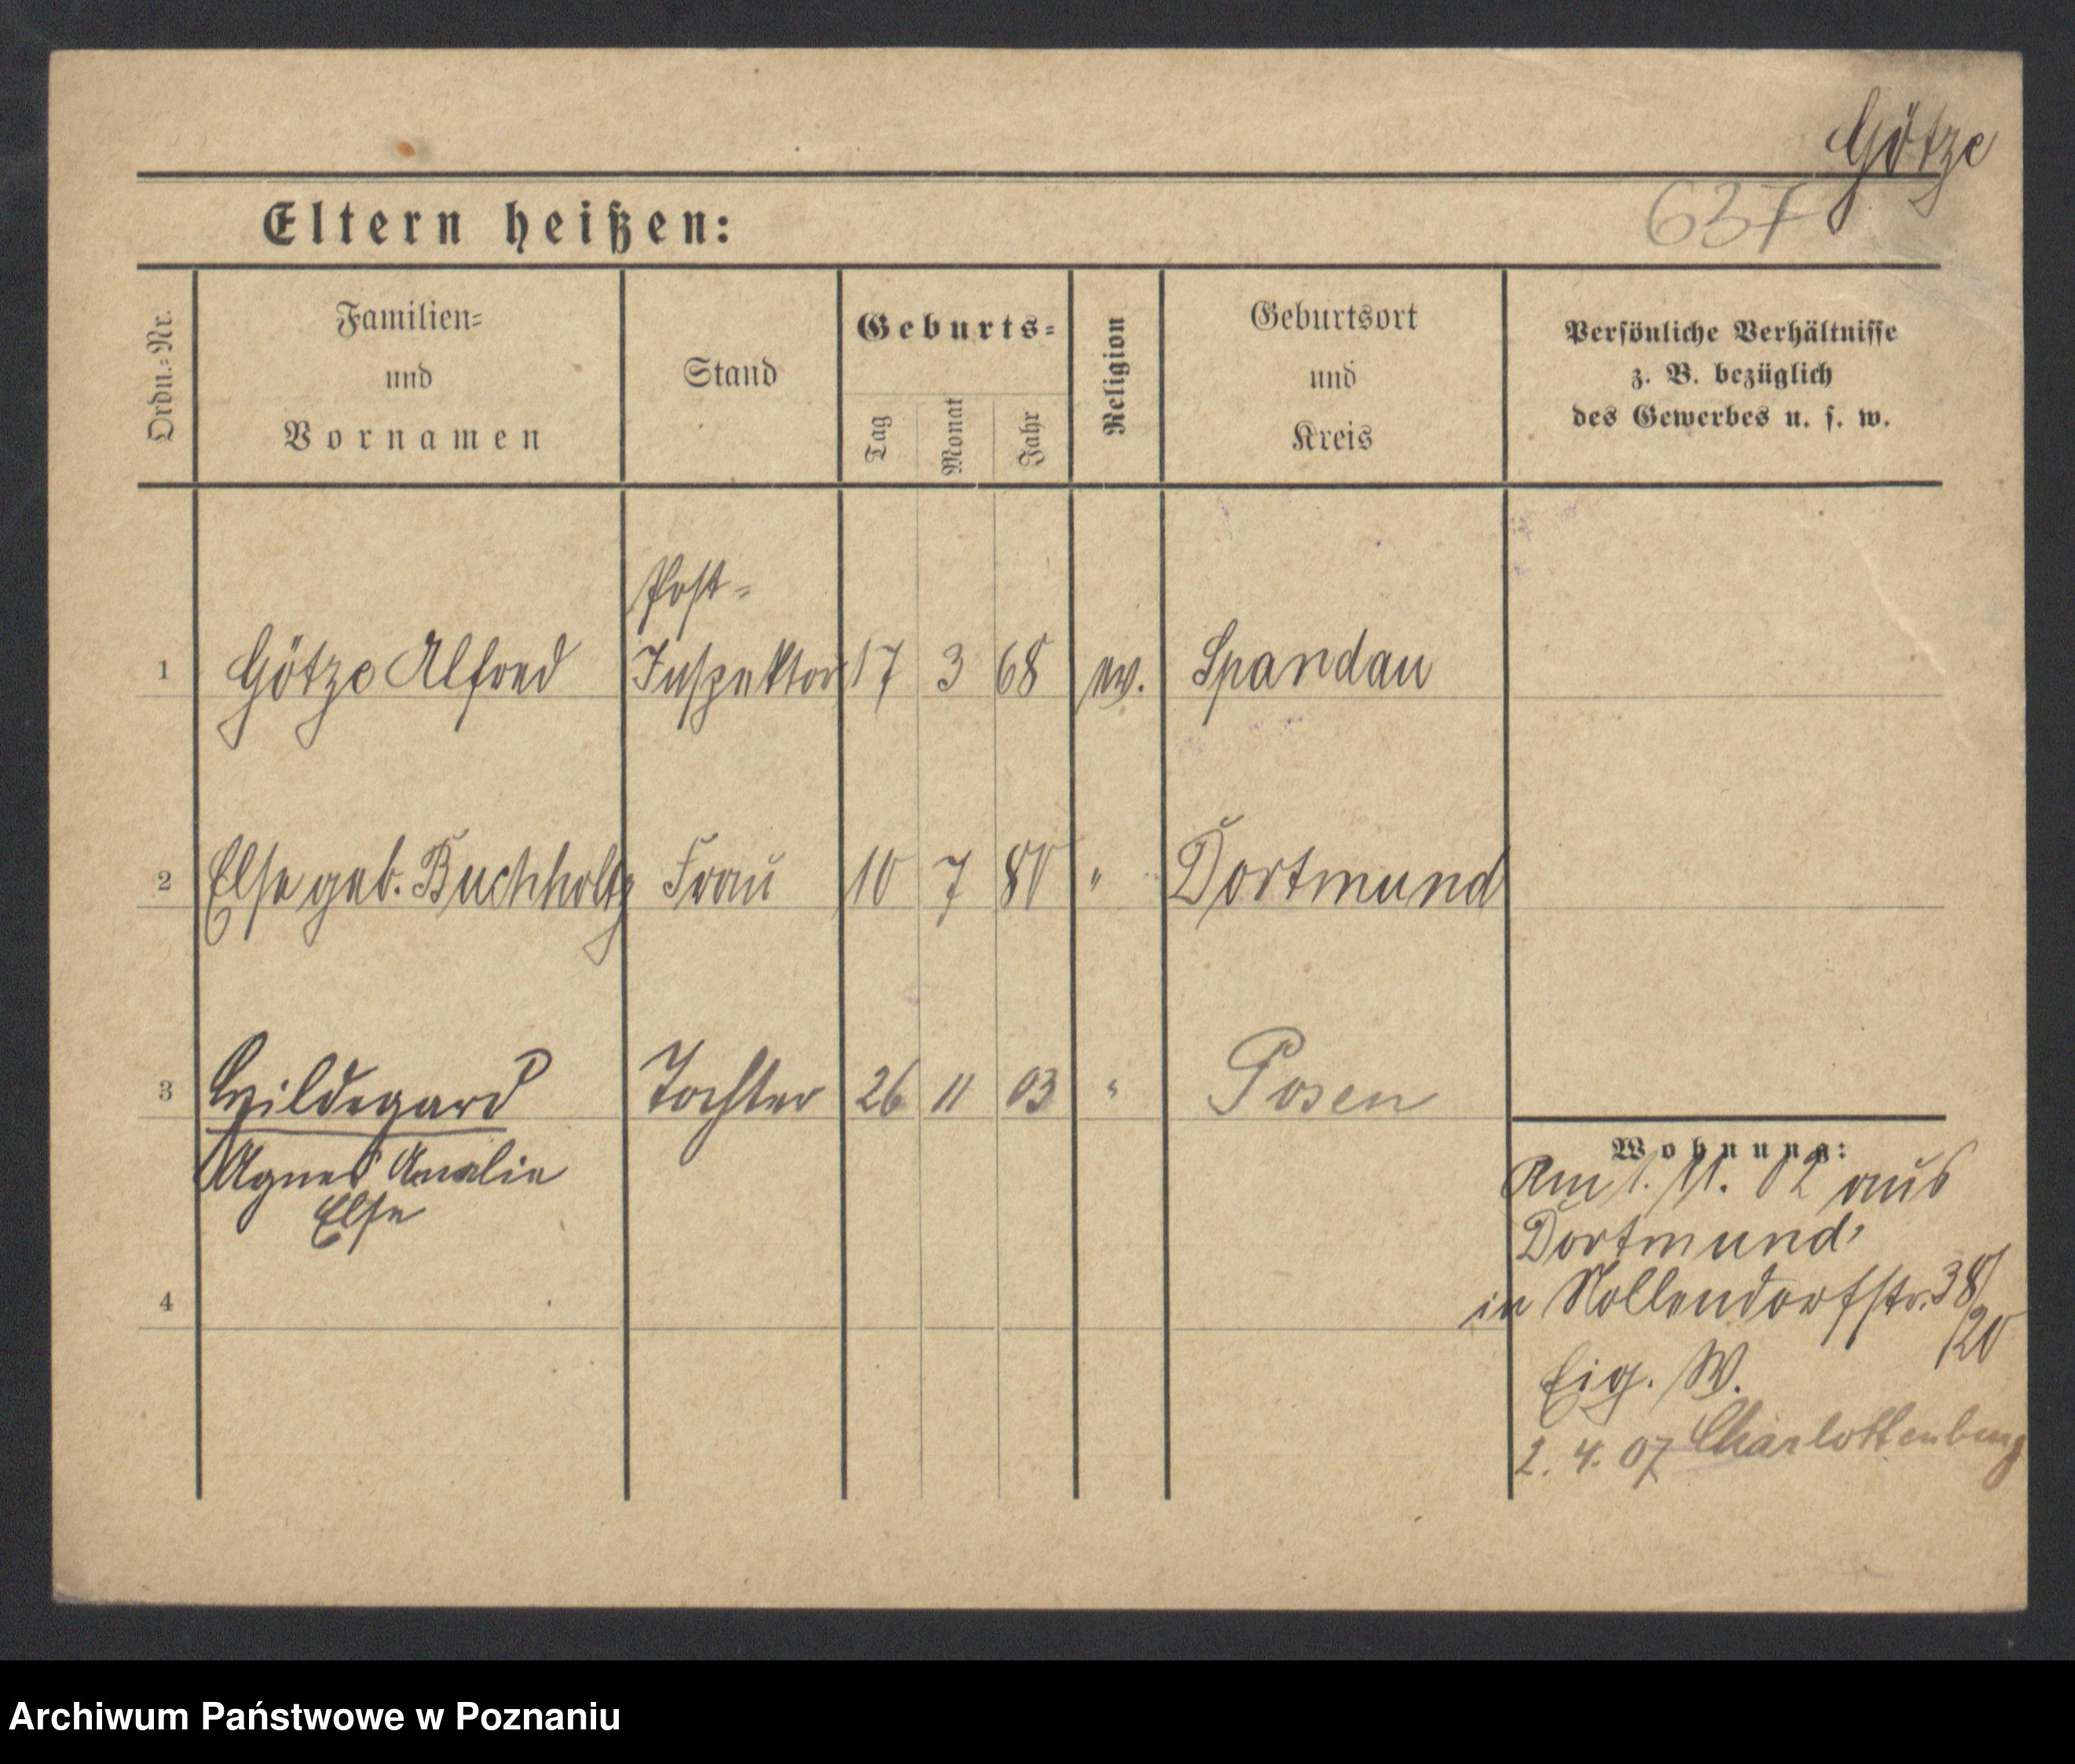 Götze
637
Eltern heißen:
Ordn.=Nr.
Familien=
und
Vornamen
Stand
Geburts=
Tag
Monat
Jahr
Religion
Geburtsort
und
Kreis
Persönliche Verhältnisse
z. B. bezüglich
des Gewerbes u. s. w.
Post=
1 Götze Alfred Inspektor 17 3 68 ev. Spandau
2 Else geb. Buchholtz Frau 10 7 80 " Dortmund
3 Hildegard Tochter 26 11 03 " Posen
Agnes Amalie
Else
4
Wohnung:
Am 1. 11. 02 aus
Dortmund
in Nollendorfstr. 38/
20
Eig. W.
2. 4. 07 Charlottenburg
Archiwum Państwowe w Poznaniu